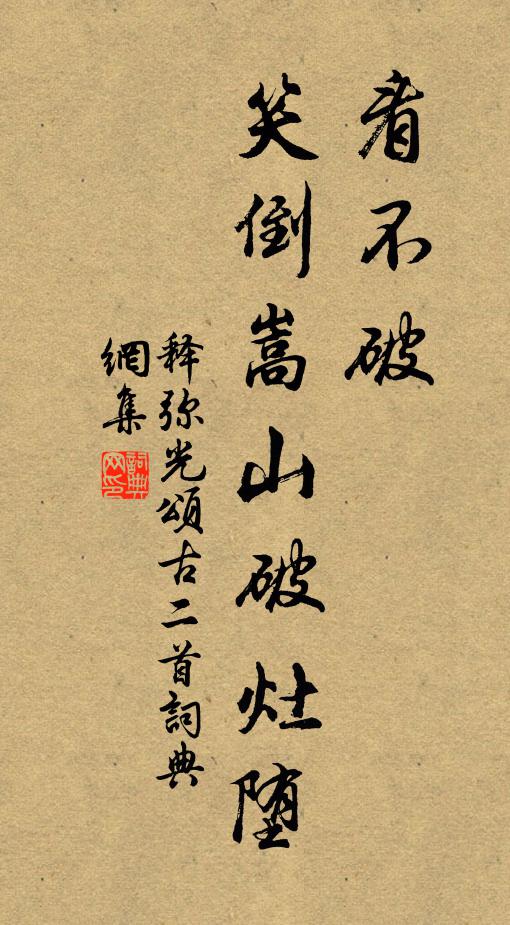 看不破
笑倒嵩山破灶堕
释弥光頌古二首詞典
網集
詞典
网印